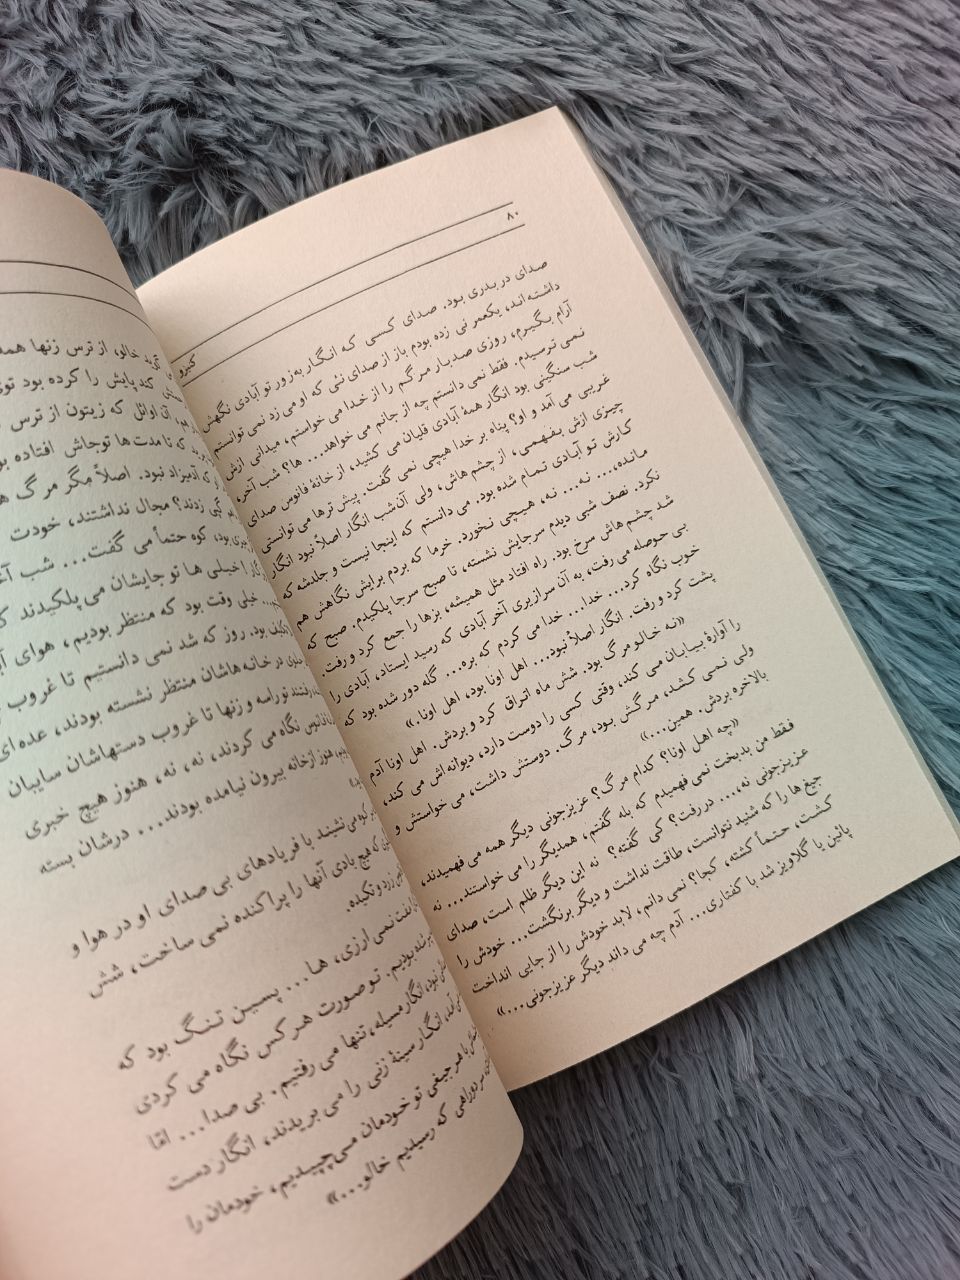 ۸۰
کنیزو
صدای در بدری بود. صدای کسی که انگار به زور تو آبادی نگهش
داشته‌اند، یکعمر نی زده بودم باز از صدای نئی که او می‌زد نمی توانستم
آرام بگیرم، روزی صدبار مرگم را از خدا می خواستم، میدانی ازش
نمی ترسیدم. فقط نمی دانستم چه از جانم می خواهد... ها؟ شب آخر،
شب سنگینی بود انگار همهٔ آبادی قلیان می کشید، از خانهٔ فانوس صدای
غریبی می آمد و او؟ پناه بر خدا هیچی نمی گفت. پیش ترها می توانستی
چیزی ازش بفهمی، از چشم هاش، ولی آن شب انگار اصلاً نبود انگار
کارش تو آبادی تمام شده بود. می دانستم که اینجا نیست و جلدشه که
مانده،... نه... نه، هیچی نخورد. خرما که بردم برایش نگاهش هم
نکرد. نصف شبی دیدم سرجایش نشسته، تا صبح سرجا پلکیدم. صبح که
شد چشم هاش سرخ بود. راه افتاد مثل همیشه، بزها را جمع کرد و رفت.
بی حوصله می رفت، به آن سرازیری آخر آبادی که رسید ایستاد، آبادی را
خوب نگاه کرد... خدا... خدا می کردم که بره... گله دور شده بود که
پشت کرد و رفت. انگار اصلاً نبود... اهل اونا بود، اهل اونا.»
«نه خالو مرگ بود. شش ماه اتراق کرد و بردش. اهل اونا آدم
را آوارهٔ بیابان می کند، وقتی کسی را دوست دارد، دیوانه‌اش می کند،
ولی نمی کشد، مرگش بود، مرگ. دوستش داشت، می خواستش و
بالاخره بردش. همین...»
«چه اهل اونا؟ کدام مرگ؟ عزیزجونی دیگر همه می فهمیدند،
فقط من بدبخت نمی فهمیدم که بله گفتم، همدیگر را می خواستند... نه
عزیزجونی نه،... دررفت؟ کی گفته؟ نه این دیگر ظلم است، صدای
جیغ ها را که شنید نتوانست، طاقت نداشت و دیگر برنگشت... خودش را
کشت، حتماً کشته، کجا؟ نمی دانم، لابد خودش را از جایی انداخت
پائین یا گلاویز شد با کفتاری... آدم چه می داند دیگر عزیزجونی...»
خالو، از ترس زنها
پایش را کرده بود
آن اوائل که زیتون از ترس
که تا مدت ها توجاش افتاده
که آدمیزاد نبود. اصلاً مگر مرگ
زدند؟ مجال نداشتند، خودت
بود، کوه حتماً می گفت... شب
خیلی ها تو جایشان می پلکیدند
خیلی وقت بود که منتظر بودیم، هوای
بود. روز که شد نمی دانستیم تا غروب
در خانه هاشان منتظر نشسته بودند، عده‌ای
رفتند تو راسه و زنها تا غروب دستهاشان سایبان
فانوس نگاه می کردند، نه، نه، هنوز هیچ خبری
هنوز از خانه بیرون نیامده بودند... درشان بسته
می نشیند با فریادهای بی صدای او در هوا و
که هیچ بادی آنها را پراکنده نمی ساخت، شش
زرد و تکیده.
نمی ارزی، ها... پسین تنگ بود که
بودیم. تو صورت هرکس نگاه می کردی
بود، انگار مسیله، تنها می رفتیم. بی صدا... امّا
انگار سینهٔ زنی را می بریدند، انگار دست
با هر جیغی تو خودمان می چپیدیم، خودمان را
سر دوراهی که رسیدیم خالو...»